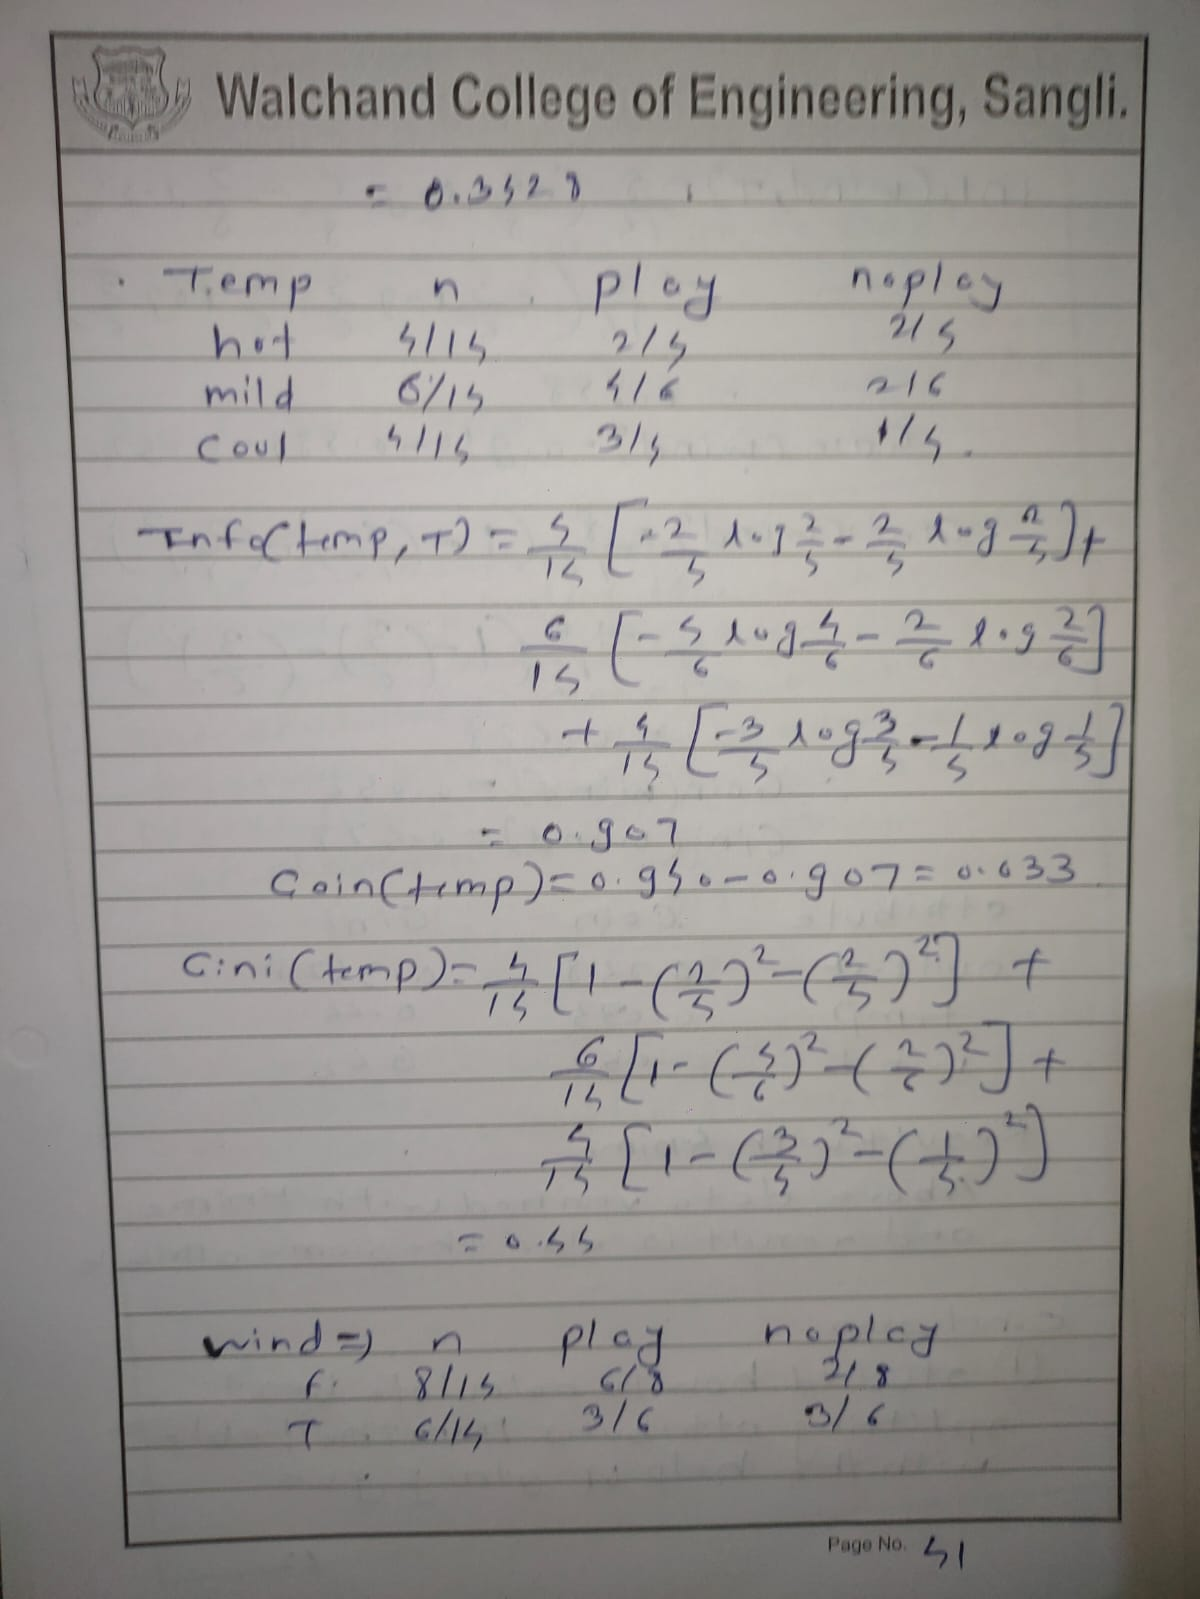 Walchand College of Engineering, Sangli.
= 0.3428
Temp n play noplay
hot 4/14 2/4 2/4
mild 6/14 4/6 2/6
Cool 4/14 3/4 1/4
Info(temp, T) = 4/14 [-2/4 log 2/4 - 2/4 log 2/4] +
6/14 [-4/6 log 4/6 - 2/6 log 2/6]
+ 4/14 [-3/4 log 3/4 - 1/4 log 1/4]
= 0.907
Gain(temp) = 0.940 - 0.907 = 0.033
Gini(temp) = 4/14 [1 - (2/4)² - (2/4)²] +
6/14 [1 - (4/6)² - (2/6)²] +
4/14 [1 - (3/4)² - (1/4)²]
= 0.44
wind => n play noplay
f. 8/14 6/8 2/8
T 6/14 3/6 3/6
Page No. 41